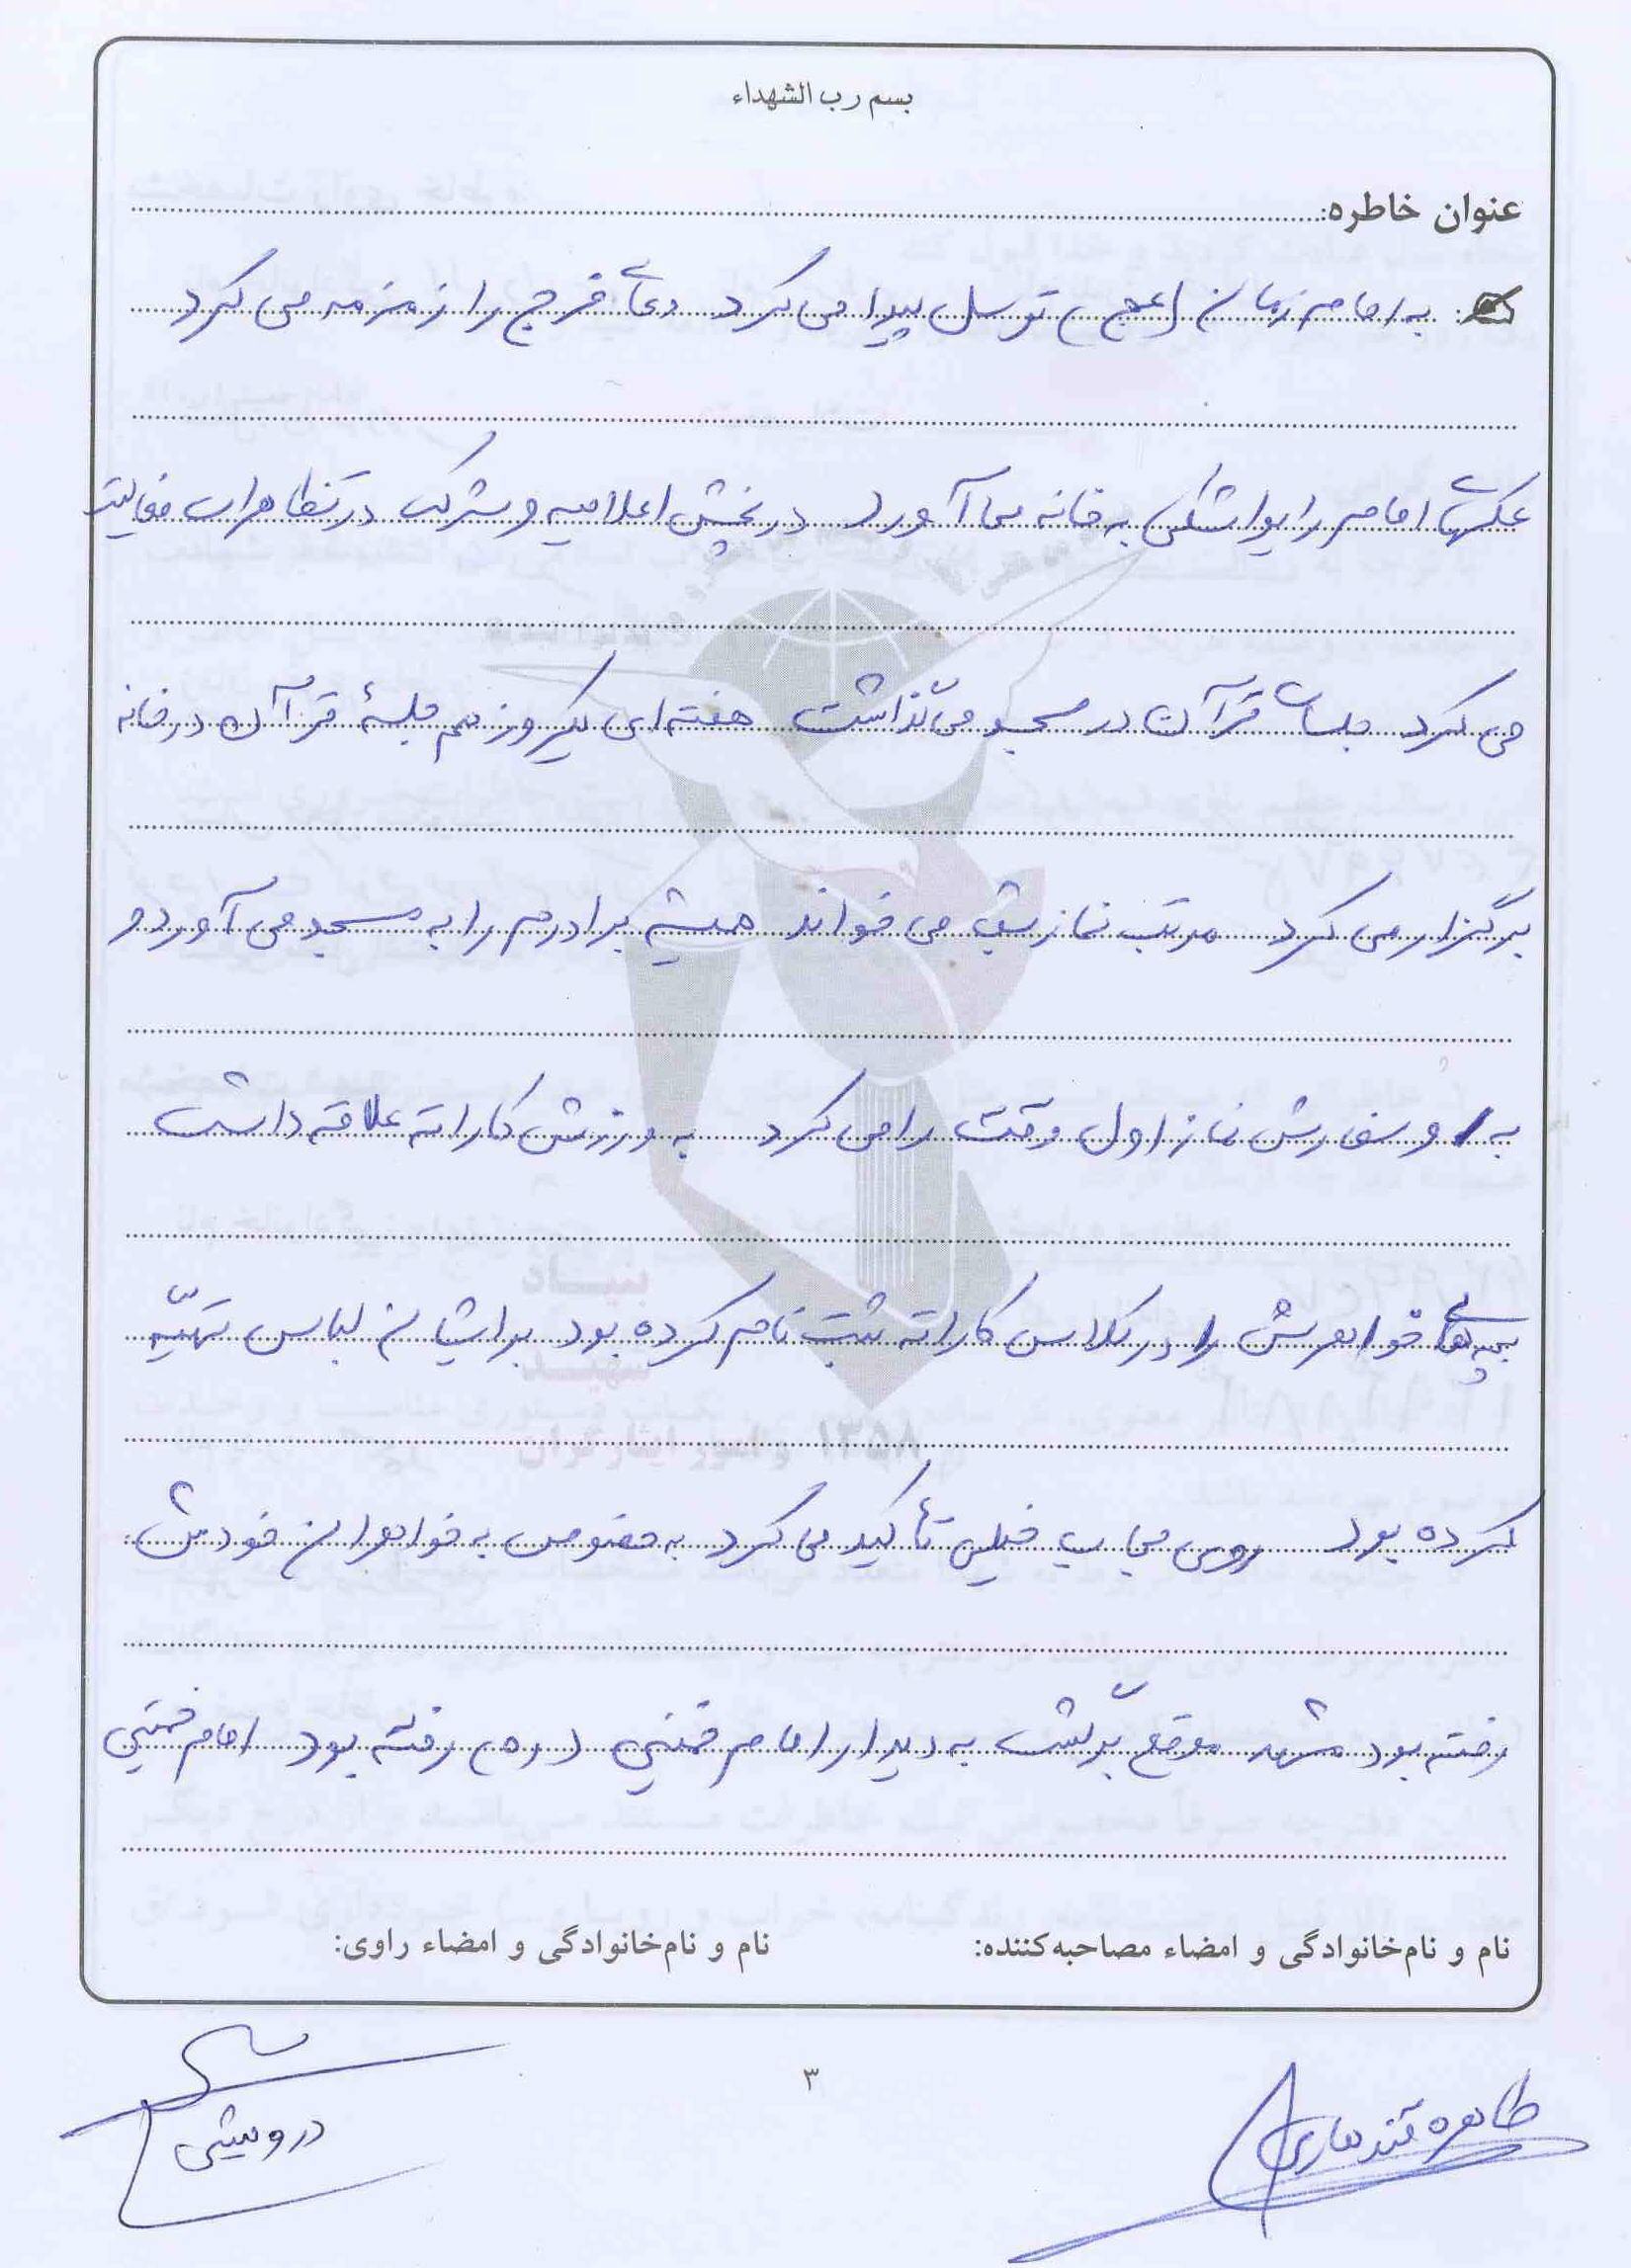 بسم رب الشهداء
عنوان خاطره:
به امام زمان (عج) توسل پیدا می کرد دعای فرج را زمزمه می کرد
عکسهای امام را یواشکی به خانه می آورد در پخش اعلامیه و شرکت در تظاهرات فعالیت
می کرد جلسات قرآن در مسجد می گذاشت هفته ای یکروز هم جلسهٔ قرآن در خانه
برگزار می کرد مرتب نماز شب می خواند همیشه برادرم را به مسجد می آورد و
به او سفارش نماز اول وقت را می کرد به ورزش کاراته علاقه داشت
بچه های خواهرش را در کلاس کاراته ثبت نام کرده بود برایشان لباس تهیّه
کرده بود روی حجاب خیلی تأکید می کرد به خصوص به خواهران خودش
رفته بود مشهد موقع برگشت به دیدار امام خمینی (ره) رفته بود امام خمینی
نام و نام‌خانوادگی و امضاء مصاحبه‌کننده:
نام و نام‌خانوادگی و امضاء راوی:
طاهره قندهاری
درویشی
۳
بنیاد
شهید
و امور ایثارگران
۱۳۵۸